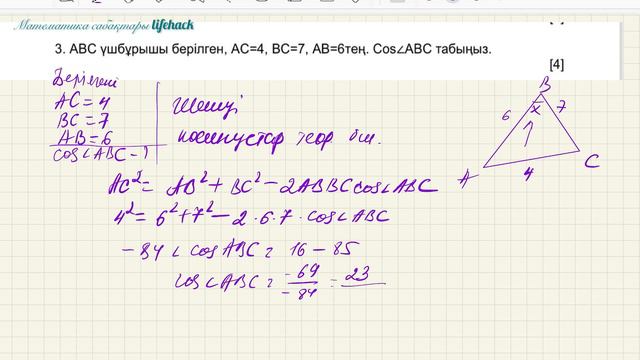 Математика сабақтары lifehack
3. АВС үшбұрышы берілген, АС=4, ВС=7, АВ=6тең. Cos∠ABC табыңыз.
[4]
Берілгені
AC = 4
BC = 7
AB = 6
cos∠ABC - ?
Шешуі
косинустар теор
B
6
x
7
A
4
C
AC² = AB² + BC² - 2ABBCcos∠ABC
4² = 6² + 7² - 2·6·7·cos∠ABC
-84∠cosABC = 16 - 85
cos∠ABC = -69/-84 = 23